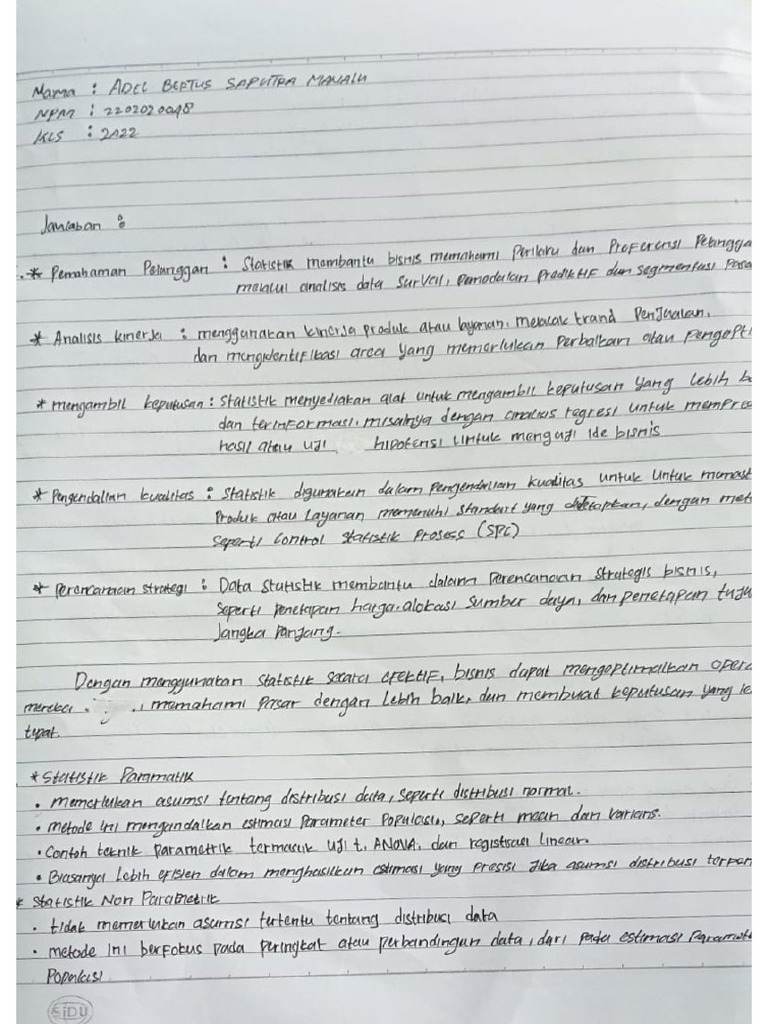 Nama : ADEL BERTUS SAPUTRA MANALU
NPM : 2202020048
KLS : 2022
Jawaban :
* Pemahaman Pelanggan : Statistik membantu bisnis memahami Perilaku dan Preferensi Pelangga
melalui analisis data Survei, pemodelan Prediktif dan segmentasi Pasa
* Analisis kinerja : menggunakan kinerja produk atau layanan, melacak trand Penjualan,
dan mengidentifikasi area yang memerlukan Perbaikan atau Pengopti
* mengambil keputusan : Statistik menyediakan alat untuk mengambil keputusan yang lebih b
dan terinformasi. misalnya dengan analisis regresi untuk mempre
hasil atau uji hipotensi untuk menguji ide bisnis
* Pengendalian kualitas : Statistik digunakan dalam pengendalian kualitas untuk untuk memast
Produk atau Layanan memenuhi standart yang ditetapkan, dengan met
Seperti Control Statistik Prosess (SPC)
* Perencanaan strategi : Data Statistik membantu dalam Perencanaan Strategis bisnis,
Seperti penetapan harga. alokasi Sumber daya, dan penetapan tuju
Jangka Panjang.
Dengan menggunakan Statistik Secara efektif, bisnis dapat mengoptimalkan opera
mereka . , memahami Pasar dengan lebih baik, dan membuat keputusan yang le
tepat.
* Statistik Paramatik
• memerlukan asumsi tentang distribusi data, Seperti distribusi normal.
• metode ini mengandalkan estimasi Parameter Populasi, seperti mean dan varians.
• Contoh teknik parametrik termasuk uji t, ANOVA, dan registrasi linear.
• Biasanya lebih efisien dalam menghasilkan estimasi yang Presisi Jika asumsi distribusi terpen
* Statistik Non Parametrik
• tidak memerlukan asumsi tertentu tentang distribusi data
• metode ini berfokus pada peringkat atau perbandingan data, dari pada estimasi Paramet
Populasi
SiDU